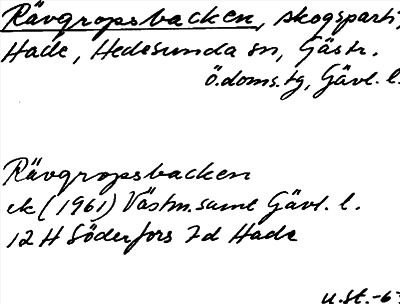 Rävgropsbacken, skogsparti,
Hade, Hedesunda sn, Gästr.
Ö.doms.tg, Gävl. l.
Rävgropsbacken
ek (1961) Västm.saml Gävl. l.
12 H Söderfors 7d Hade
u.st.-6